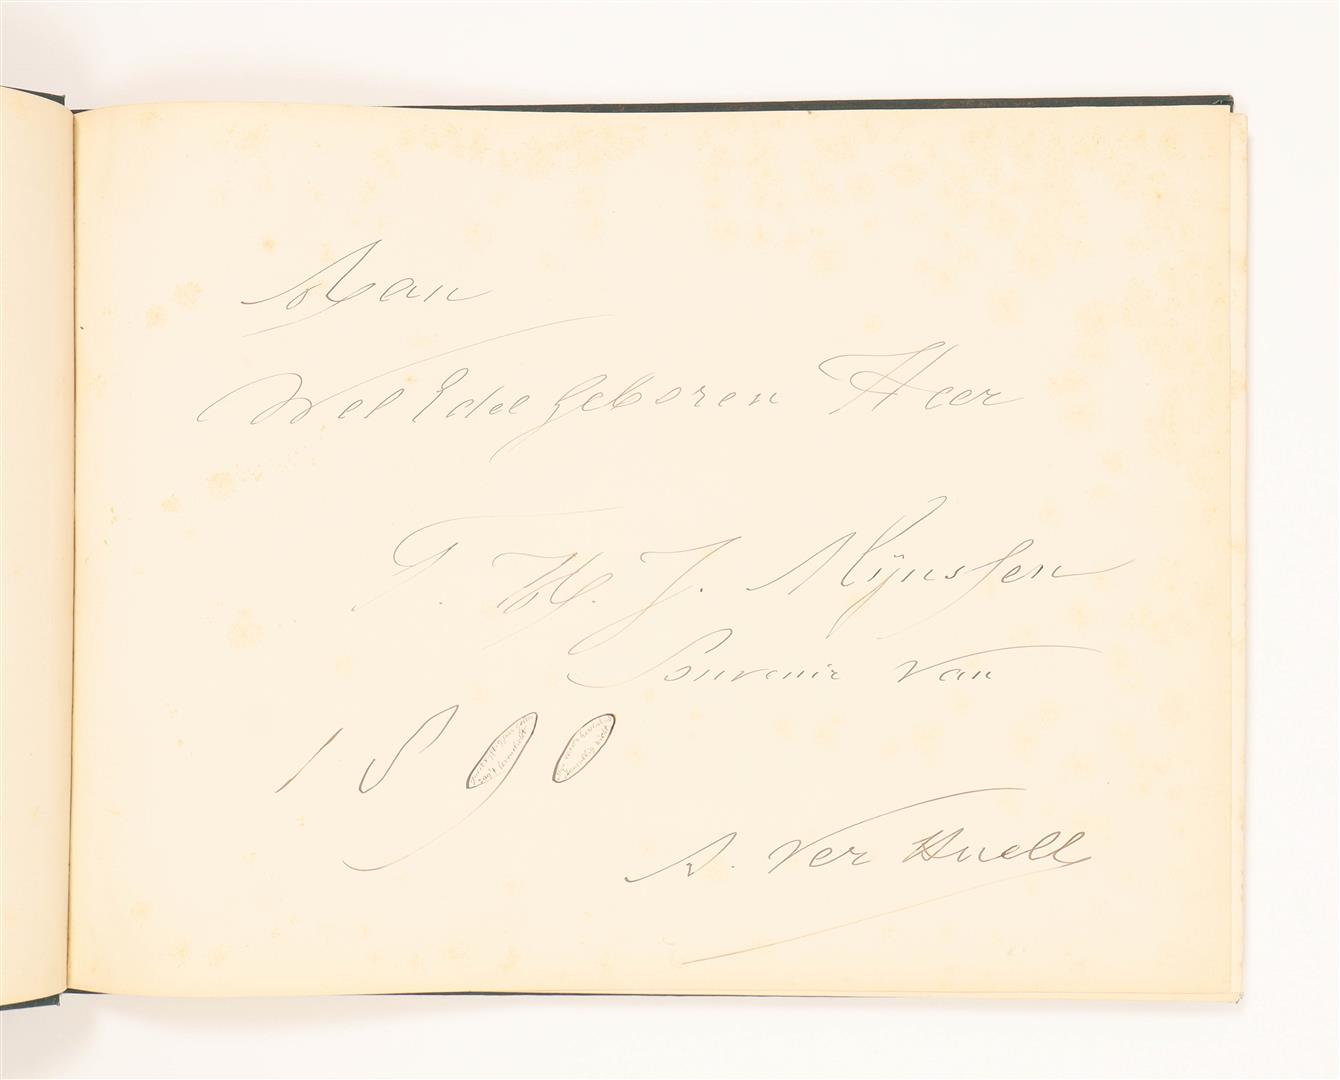 Aan
Wel Edel Geboren Heer
F. H. J. Mijnssen
Souvenir van
1890
A. Ver Huell